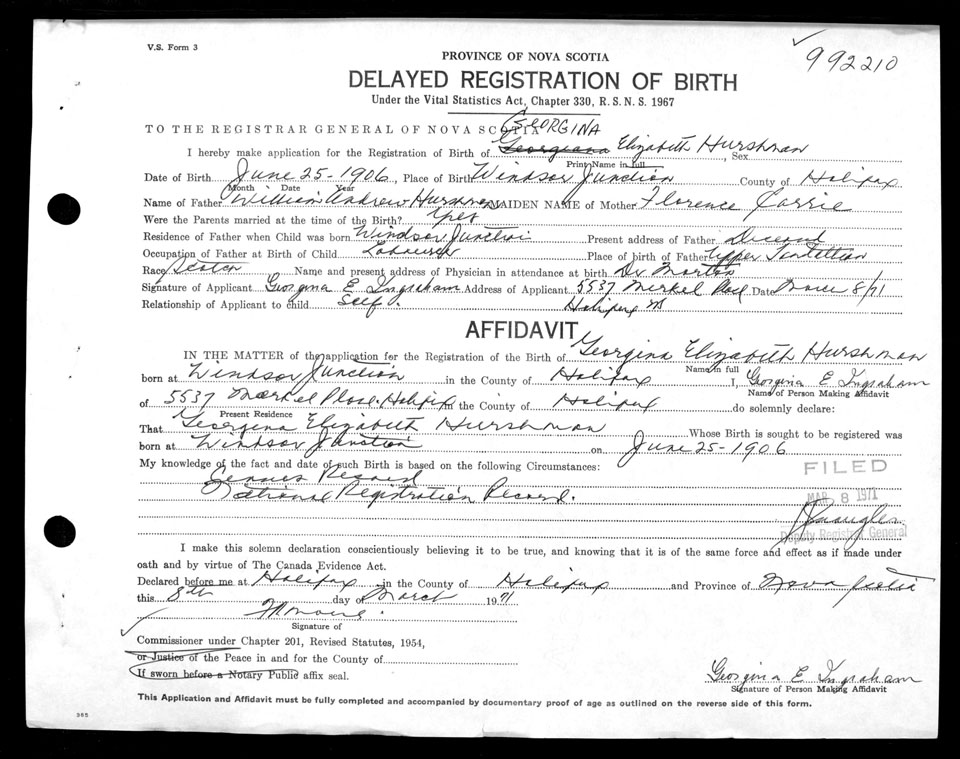 V.S. Form 3
992210
PROVINCE OF NOVA SCOTIA
DELAYED REGISTRATION OF BIRTH
Under the Vital Statistics Act, Chapter 330, R.S.N.S. 1967
TO THE REGISTRAR GENERAL OF NOVA SCOTIA
GEORGINA
I hereby make application for the Registration of Birth of Georgiana Elizabeth Hurshman, Sex
Print Name in full
Date of Birth June 25-1906, Place of Birth Windsor Junction County of Halifax
Month Date Year
Name of Father William Andrew Hurshman MAIDEN NAME of Mother Florence
Were the Parents married at the time of the Birth? Yes
Residence of Father when Child was born Windsor Junction Present address of Father
Occupation of Father at Birth of Child Place of birth of Father Upper
Race Name and present address of Physician in attendance at birth Dr
Signature of Applicant Georgina E Ingraham Address of Applicant 5537 Merkel Place Date 8/71
Relationship of Applicant to child Self. Halifax NS
AFFIDAVIT
IN THE MATTER of the application for the Registration of the Birth of Georgina Elizabeth Hurshman
Name in full
born at Windsor Junction in the County of Halifax I, Georgina E Ingraham
Name of Person Making Affidavit
of 5537 Merkel Place, Halifax in the County of Halifax do solemnly declare:
Present Residence
That Georgina Elizabeth Hurshman Whose Birth is sought to be registered was
born at Windsor Junction on June 25-1906
My knowledge of the fact and date of such Birth is based on the following Circumstances:
FILED
Census Record
National Registration Record.
MAR 8 1971
Deputy Registrar General
I make this solemn declaration conscientiously believing it to be true, and knowing that it is of the same force and effect as if made under
oath and by virtue of The Canada Evidence Act.
Declared before me at Halifax in the County of Halifax and Province of Nova Scotia
this 8th day of March 1971
Signature of
Commissioner under Chapter 201, Revised Statutes, 1954,
or Justice of the Peace in and for the County of
If sworn before a Notary Public affix seal.
Georgina E Ingraham
Signature of Person Making Affidavit
This Application and Affidavit must be fully completed and accompanied by documentary proof of age as outlined on the reverse side of this form.